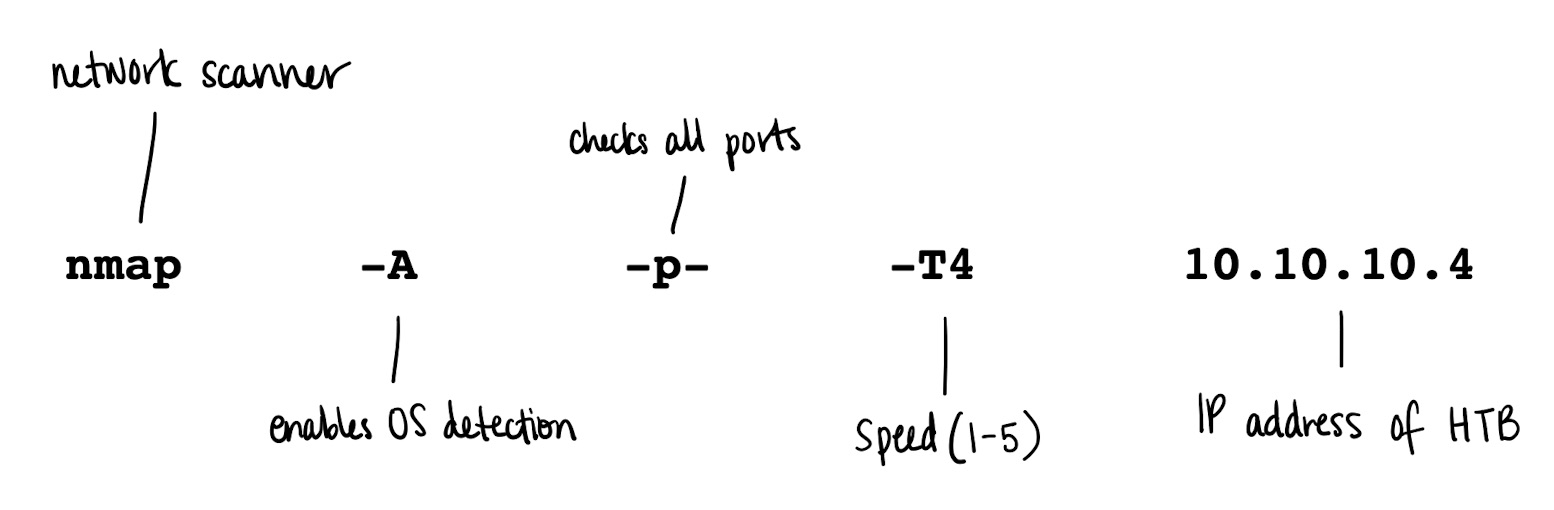 network scanner
checks all ports
nmap -A -p- -T4 10.10.10.4
enables OS detection
Speed (1-5)
IP address of HTB